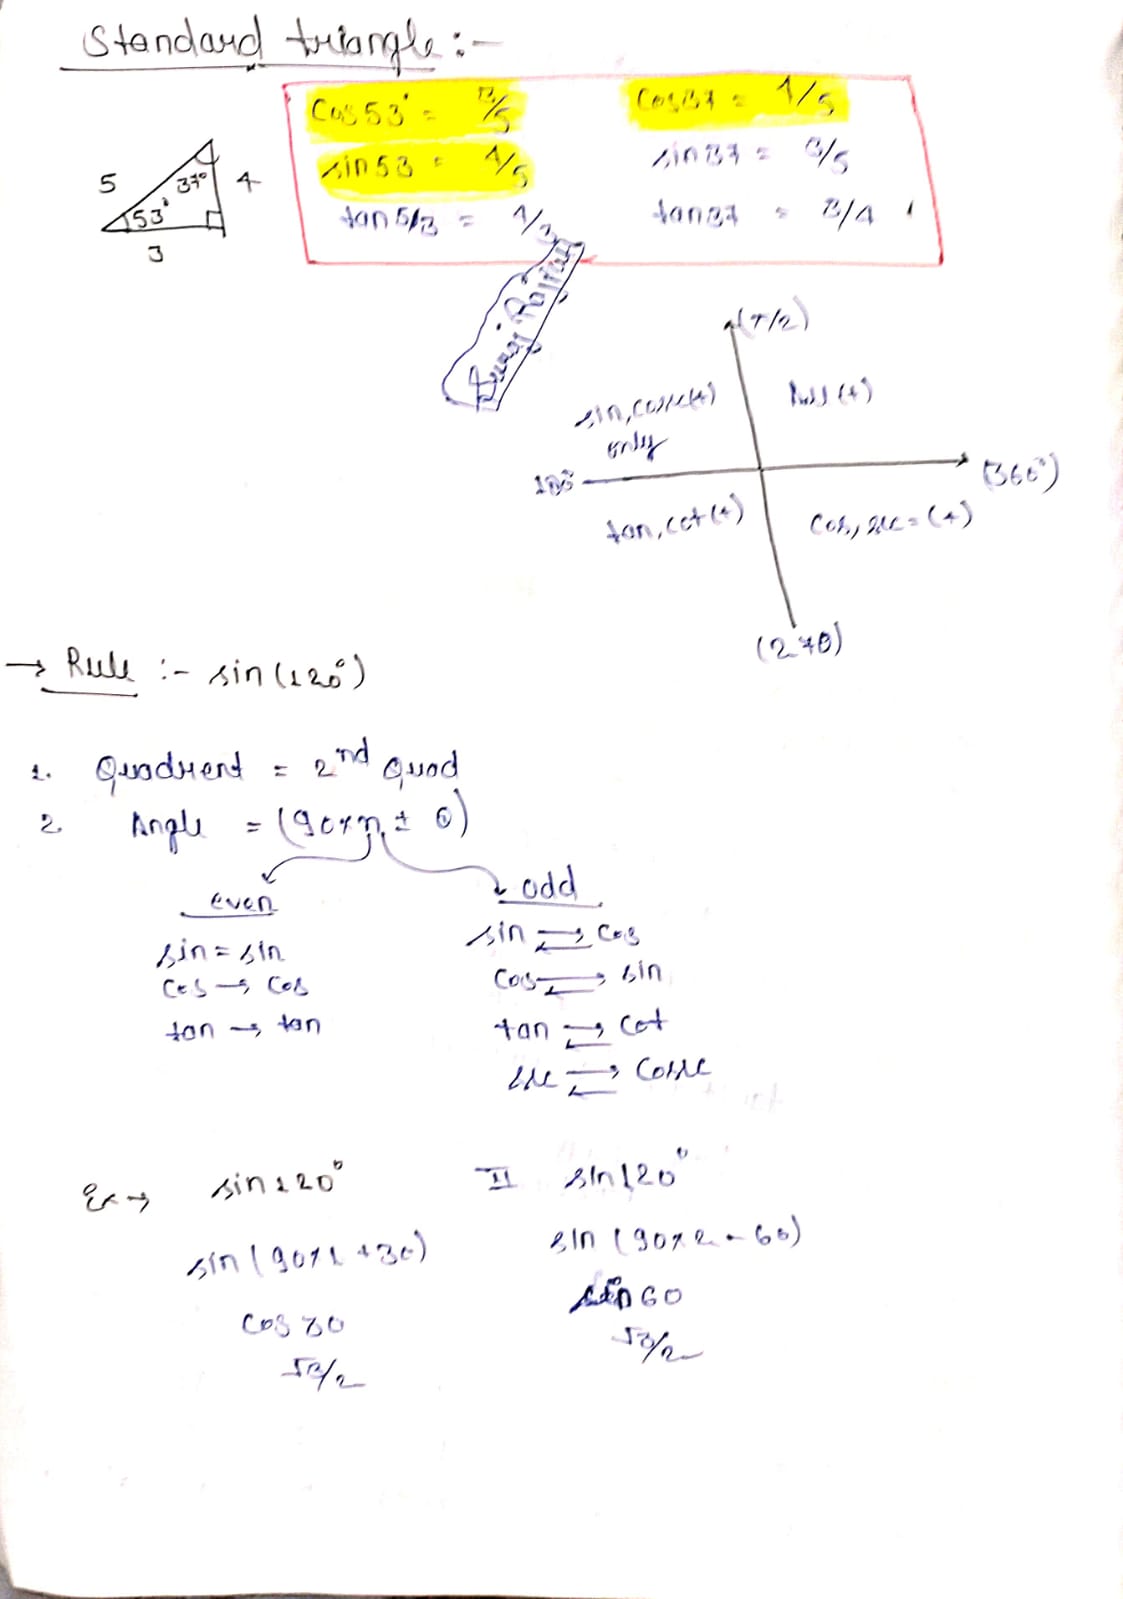 Standard triangle :-
cos 53° = 3/5
cos 37 = 4/5
sin 53 = 4/5
sin 37 = 3/5
tan 53 = 4/3
tan 37 = 3/4
5
37°
4
53°
3
(π/2)
sin, cosec(+)
only
All (+)
180°
(360°)
tan, cot (+)
cos, sec = (+)
(270)
→ Rule :- sin (120°)
1. Quadrent = 2nd Quad
2. Angle = (90×n ± θ)
even
odd
sin = sin
sin ⇌ cos
cos → cos
cos ⇌ sin
tan → tan
tan ⇌ cot
sec ⇌ cosec
Ex → sin 120°
II sin 120°
sin (90×1 + 30)
sin (90×2 - 60)
cos 30
sin 60
√3/2
√3/2